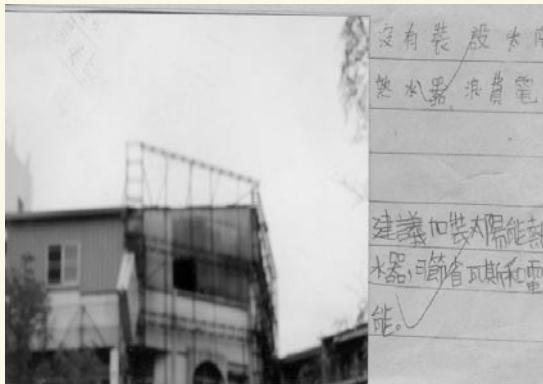 沒有裝設太
熱水器浪費電
建議加裝太陽能熱
水器,可節省瓦斯和電
能。